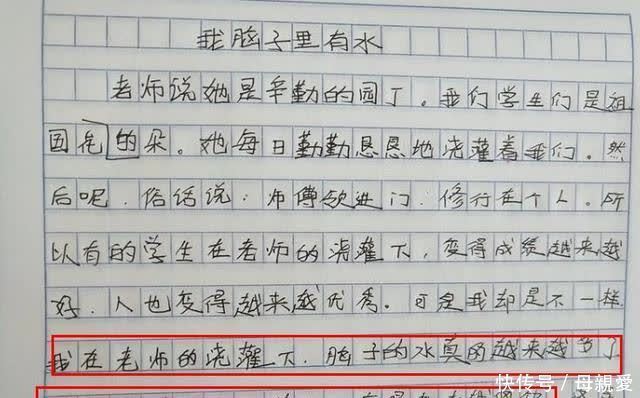 我脑子里有水
老师说她是辛勤的园丁。我们学生们是祖
国花的朵。她每日勤勤恳恳地浇灌着我们。然
后呢，俗话说：师傅领进门，修行在个人。所
以有的学生在老师的浇灌下，变得成绩越来越
好，人也变得越来越优秀。可是我却是不一样
我在老师的浇灌下，脑子的水真的越来越多了
快传号/母親愛